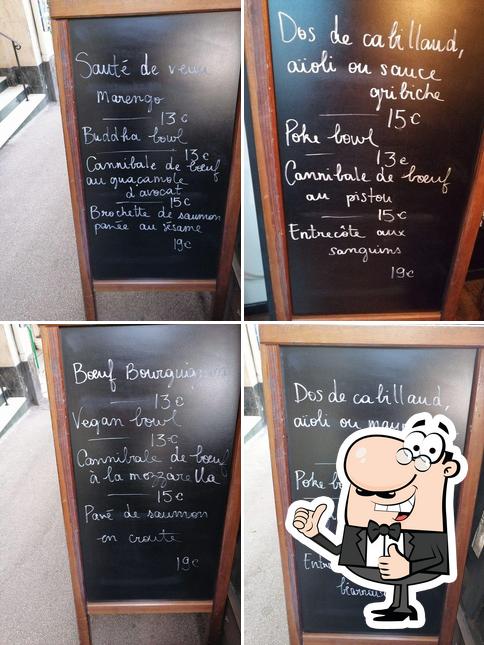 Sauté de veau
Marengo
13 €
Buddha bowl
13 €
Cannibale de bœuf
au guacamole
d'avocat
15 €
Brochette de saumon
panée au sésame
19 €
Dos de cabillaud,
aïoli ou sauce
gribiche
15 €
Poke bowl
13 €
Cannibale de bœuf
au pistou
15 €
Entrecôte aux
sanguins
19 €
Bœuf Bourguignon
13 €
Vegan bowl
13 €
Cannibale de bœuf
à la mozzarella
15 €
Pavé de saumon
en croute
19 €
Dos de cabillaud,
aïoli ou
Poke